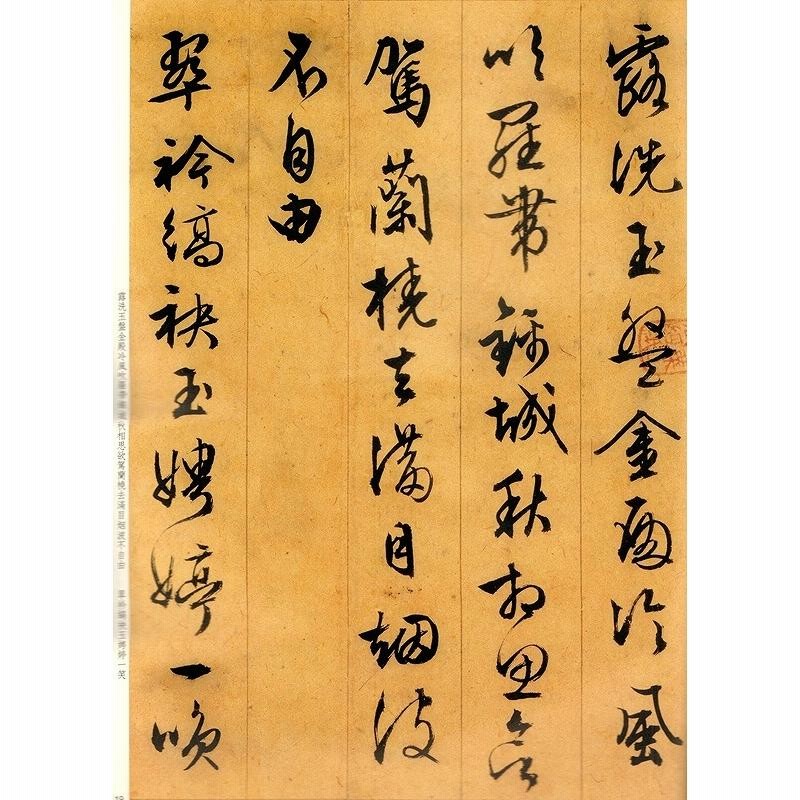 露洗玉盤金殿冷風
吹羅帶錦城秋相思欲
駕蘭橈去滿目烟波
不自由
翠衿縞袂玉娉婷一咲
露洗玉盤金殿冷風吹羅帶錦城秋相思欲駕蘭橈去滿目烟波不自由 翠衿縞袂玉娉婷一笑